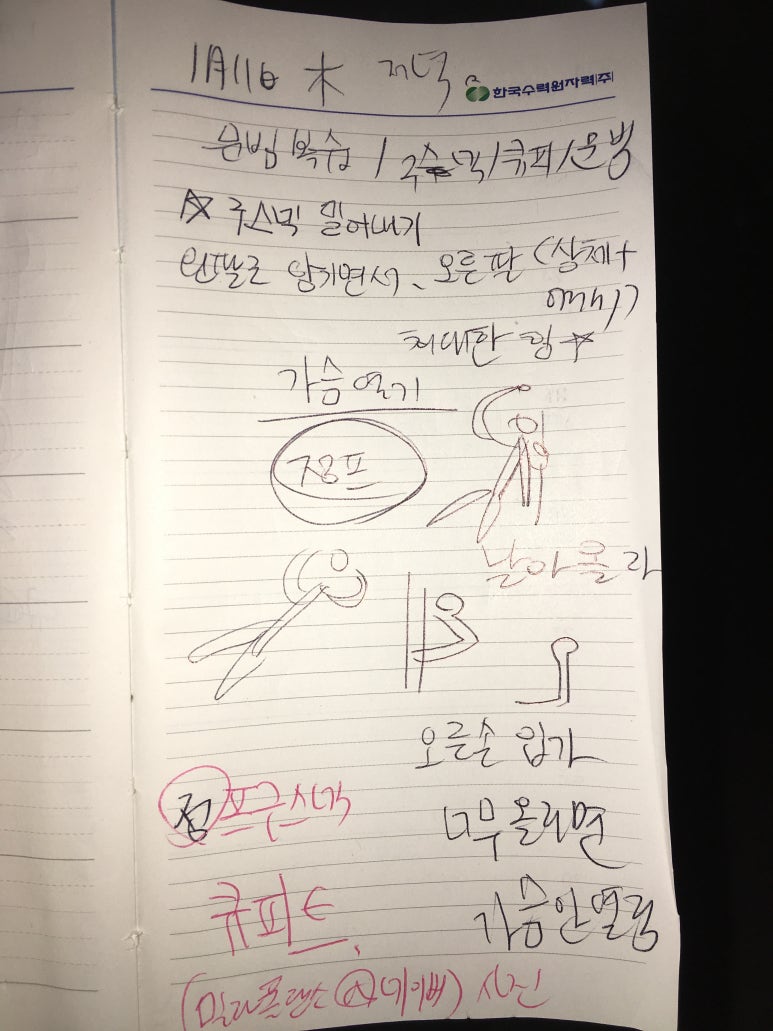 1月11日 木 저녁
한국수력원자력(주)
문법 복습 / 구스넥/큐피/운병
☆ 구스넥 밀어내기
왼팔로 당기면서、오른팔 (상체+
어깨)
최대한 힘 ☆
가슴 열기
점프
날아올라
오른손 입가
점프구스넥
너무 올리면
큐피트
가슴 안 열림
(네이버) 사진